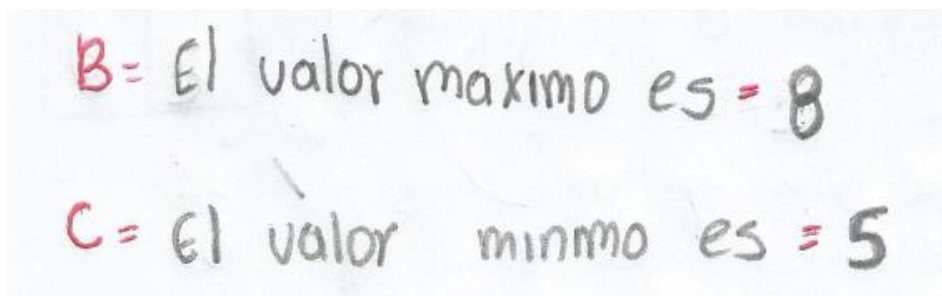 B= El valor maximo es = 8
C= El valor minmo es = 5